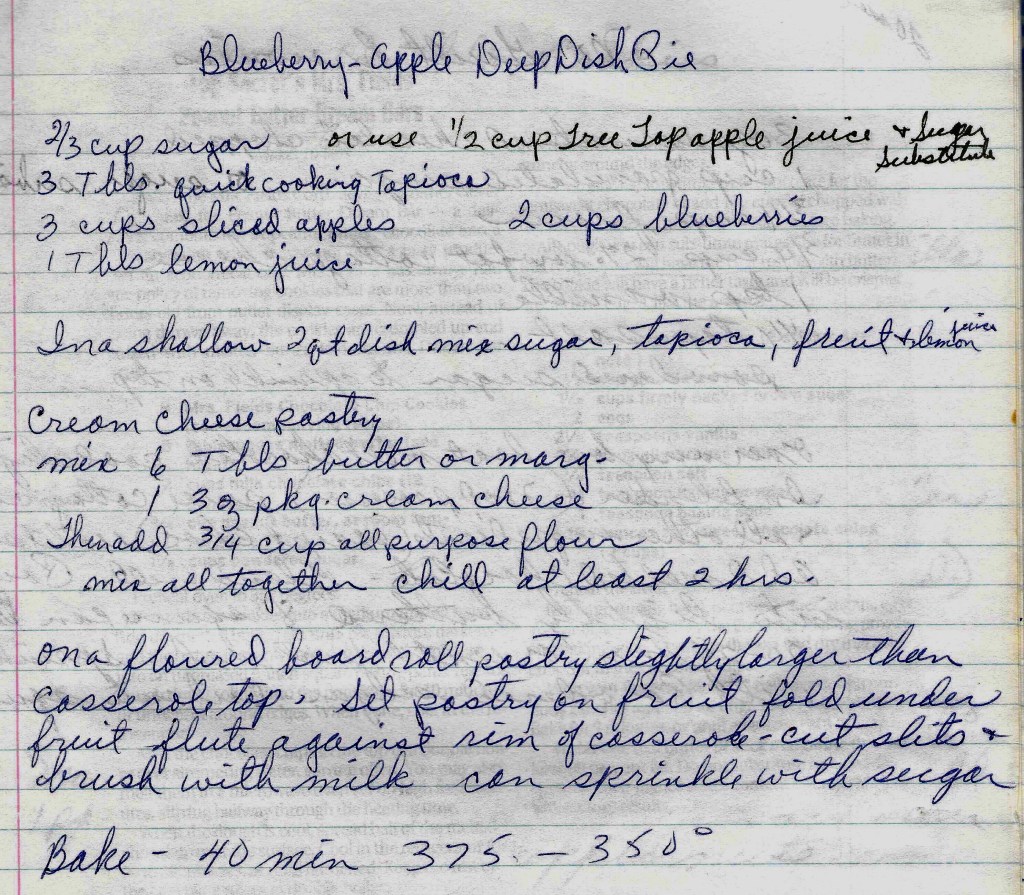 Blueberry-Apple Deep Dish Pie
2/3 cup sugar or use 1/2 cup Tree Top apple juice + Sugar Substitute
3 Tbls. quick cooking Tapioca
3 cups sliced apples 2 cups blueberries
1 Tbls lemon juice
In a shallow 2 qt dish mix sugar, tapioca, fruit + lemon juice
Cream cheese pastry
mix 6 Tbls butter or marg.
1 3 oz pkg. cream cheese
Then add 3/4 cup all purpose flour
mix all together chill at least 2 hrs.
On a floured board roll pastry slightly larger than
casserole top. Set pastry on fruit fold under
fruit flute against rim of casserole - cut slits +
brush with milk can sprinkle with sugar
Bake - 40 min 375 - 350°